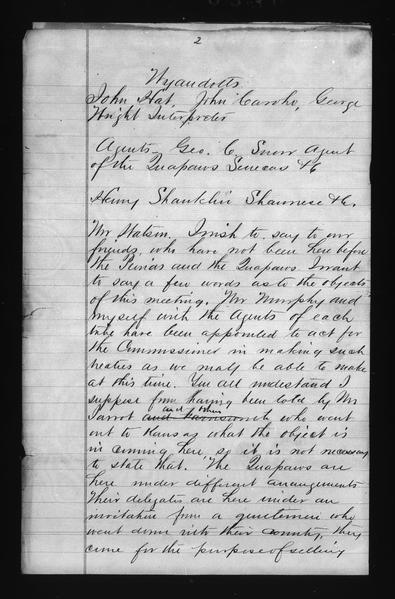 2
Wyandotts
John Hat, John Caroho, George
Wright Interpreter
Agents Geo. C. Snow Agent
of the Quapaws Senecas &c
Henry Shanklin Shawnese &c.
Mr Watson. I wish to say to our
friends, who have not been here before
the Peorias and the Quapaws I want
to say a few words as to the objects
of this meeting. Mr Murphy and
myself with the Agents of each
tribe have been appointed to act for
the Commissioner in making such
treaties as we may be able to make
at this time. You all understand I
suppose from having been told by Mr
and others
Parrot who went
out to Kansas what the object is
in coming here, so it is not necessary
to state that. The Quapaws are
here under different arrangements
Their delegates are here under an
invitation from a gentleman who
went down into their country, they
came for the purpose of selling